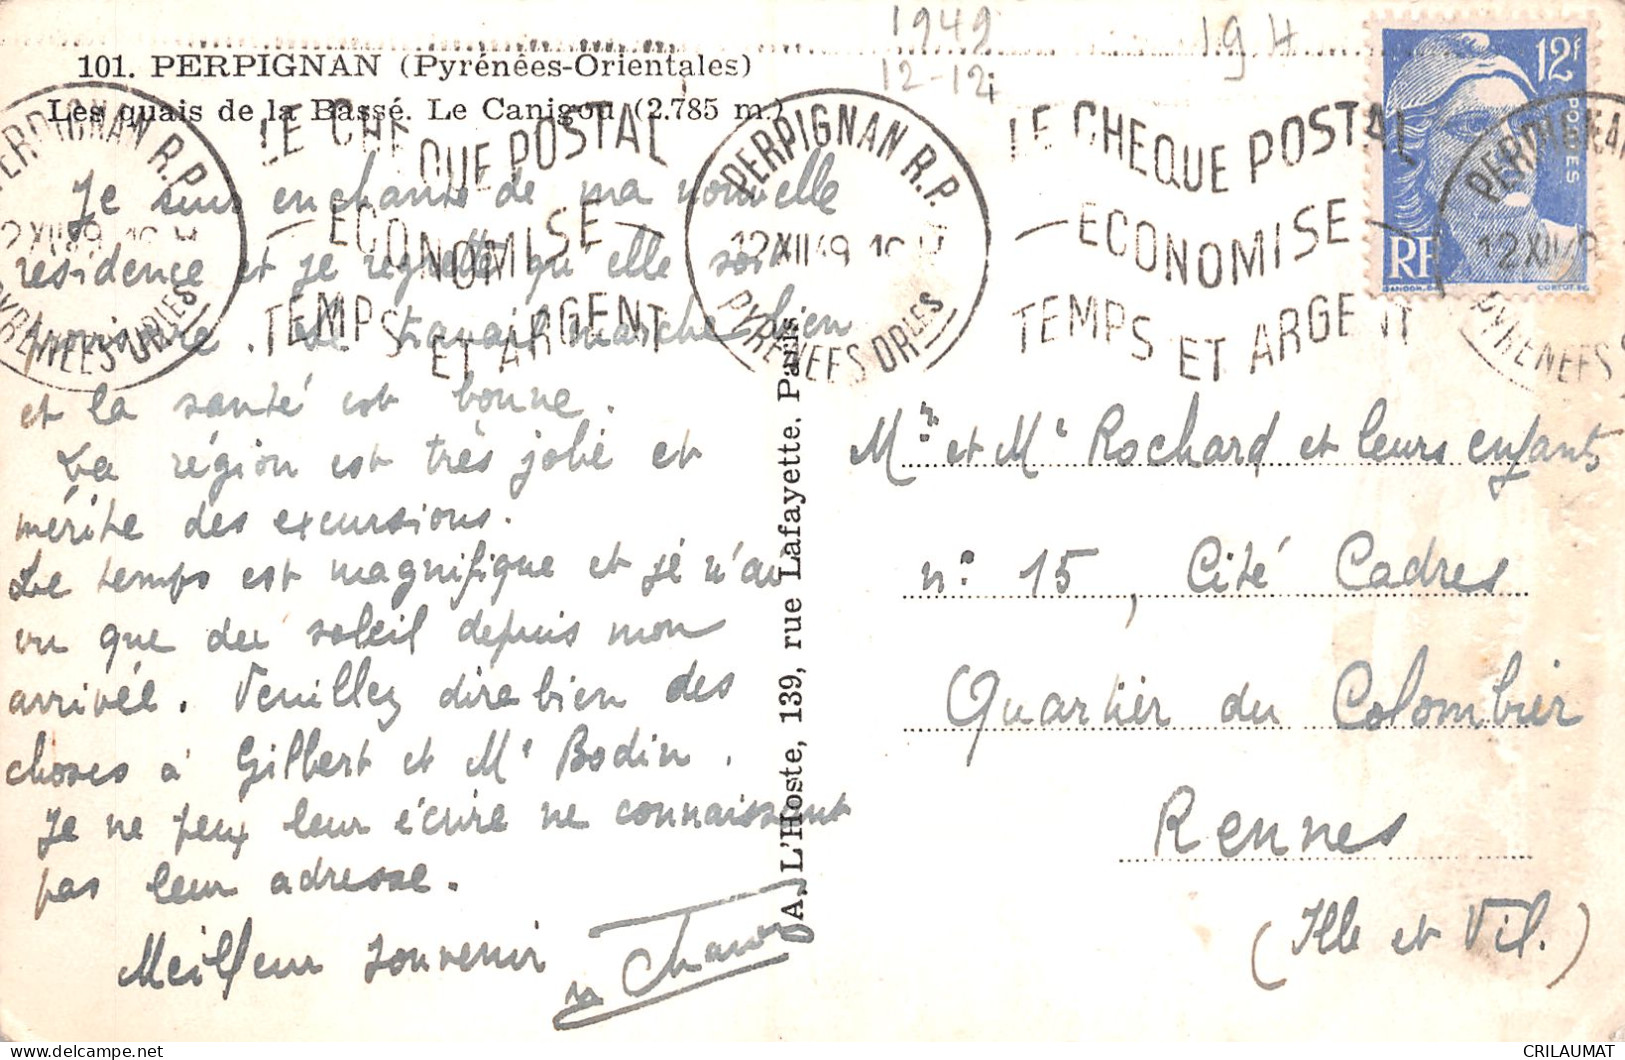 1949
19 H
12-12
101. PERPIGNAN (Pyrénées-Orientales)
Les quais de la Bassé. Le Canigou (2.785 m.)
12F
POSTES
RF
GANDON
CORTOT. SC
PERPIGNAN R.P.
12 XII 49
PYRENEES ORLES
LE CHEQUE POSTAL
ECONOMISE
TEMPS ET ARGENT
PERPIGNAN R.P.
12 XII 49
PYRENEES ORLES
LE CHEQUE POSTAL
ECONOMISE
TEMPS ET ARGENT
12 XII 49
PYRENEES
Je suis enchanté de ma nouvelle
résidence et je regrette qu'elle soit
provisoire. Le travail marche bien
et la santé est bonne.
La région est très jolie et
mérite des excursions.
Le temps est magnifique et je n'ai
vu que du soleil depuis mon
arrivée. Veuillez dire bien des
choses à Gilbert et Mr Bodin.
Je ne peux leur écrire ne connaissant
pas leur adresse.
Meilleur souvenir
A. L'Hoste, 139, rue Lafayette. Paris
Mr et Me Rochard et leurs enfants
n° 15, Cité Cadres
Quartier du Colombier
Rennes
(Ille et Vil.)
CRILAUMAT